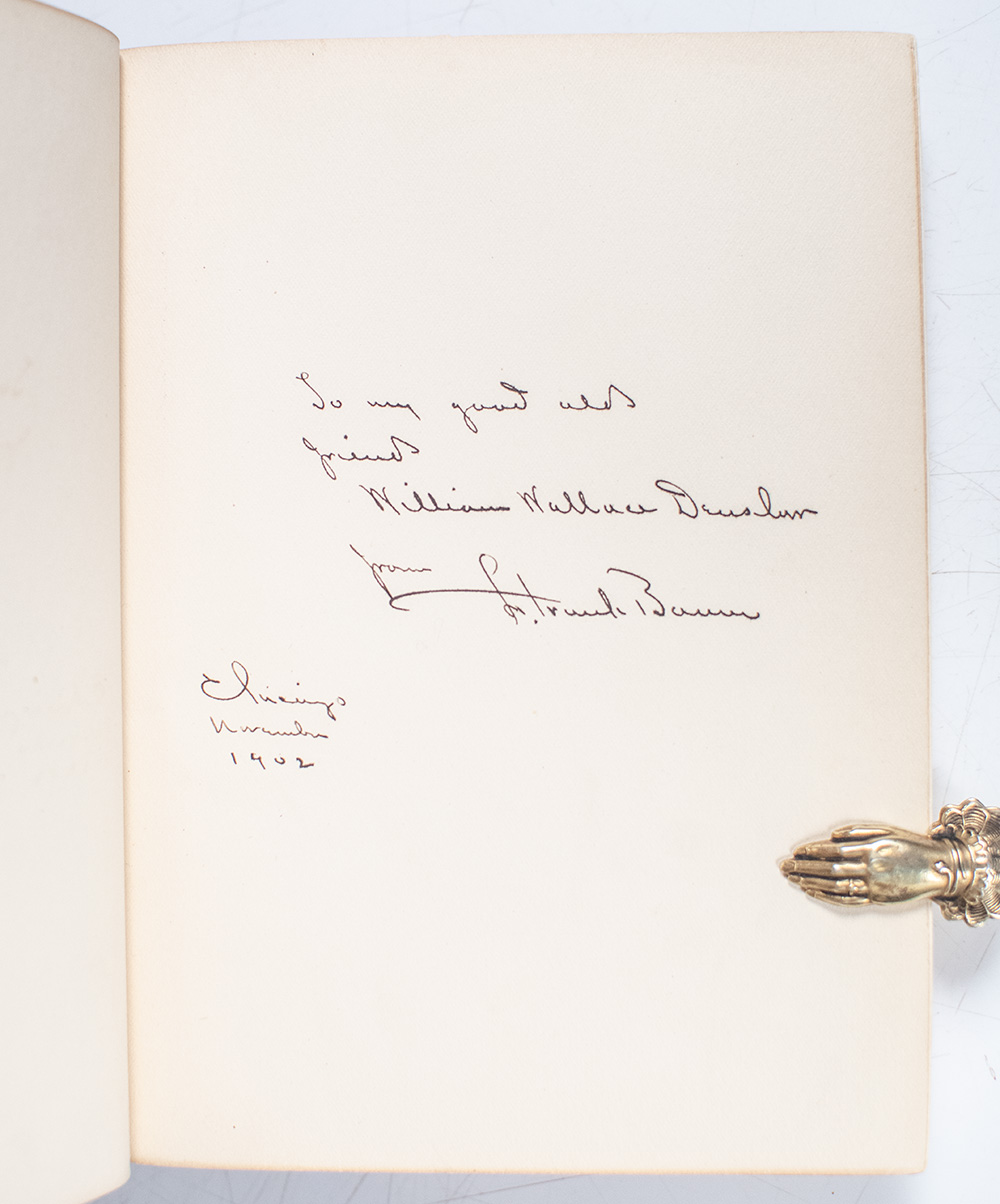 To my good old
friend
William Wallace Denslow
from L. Frank Baum
Chicago
November
1902